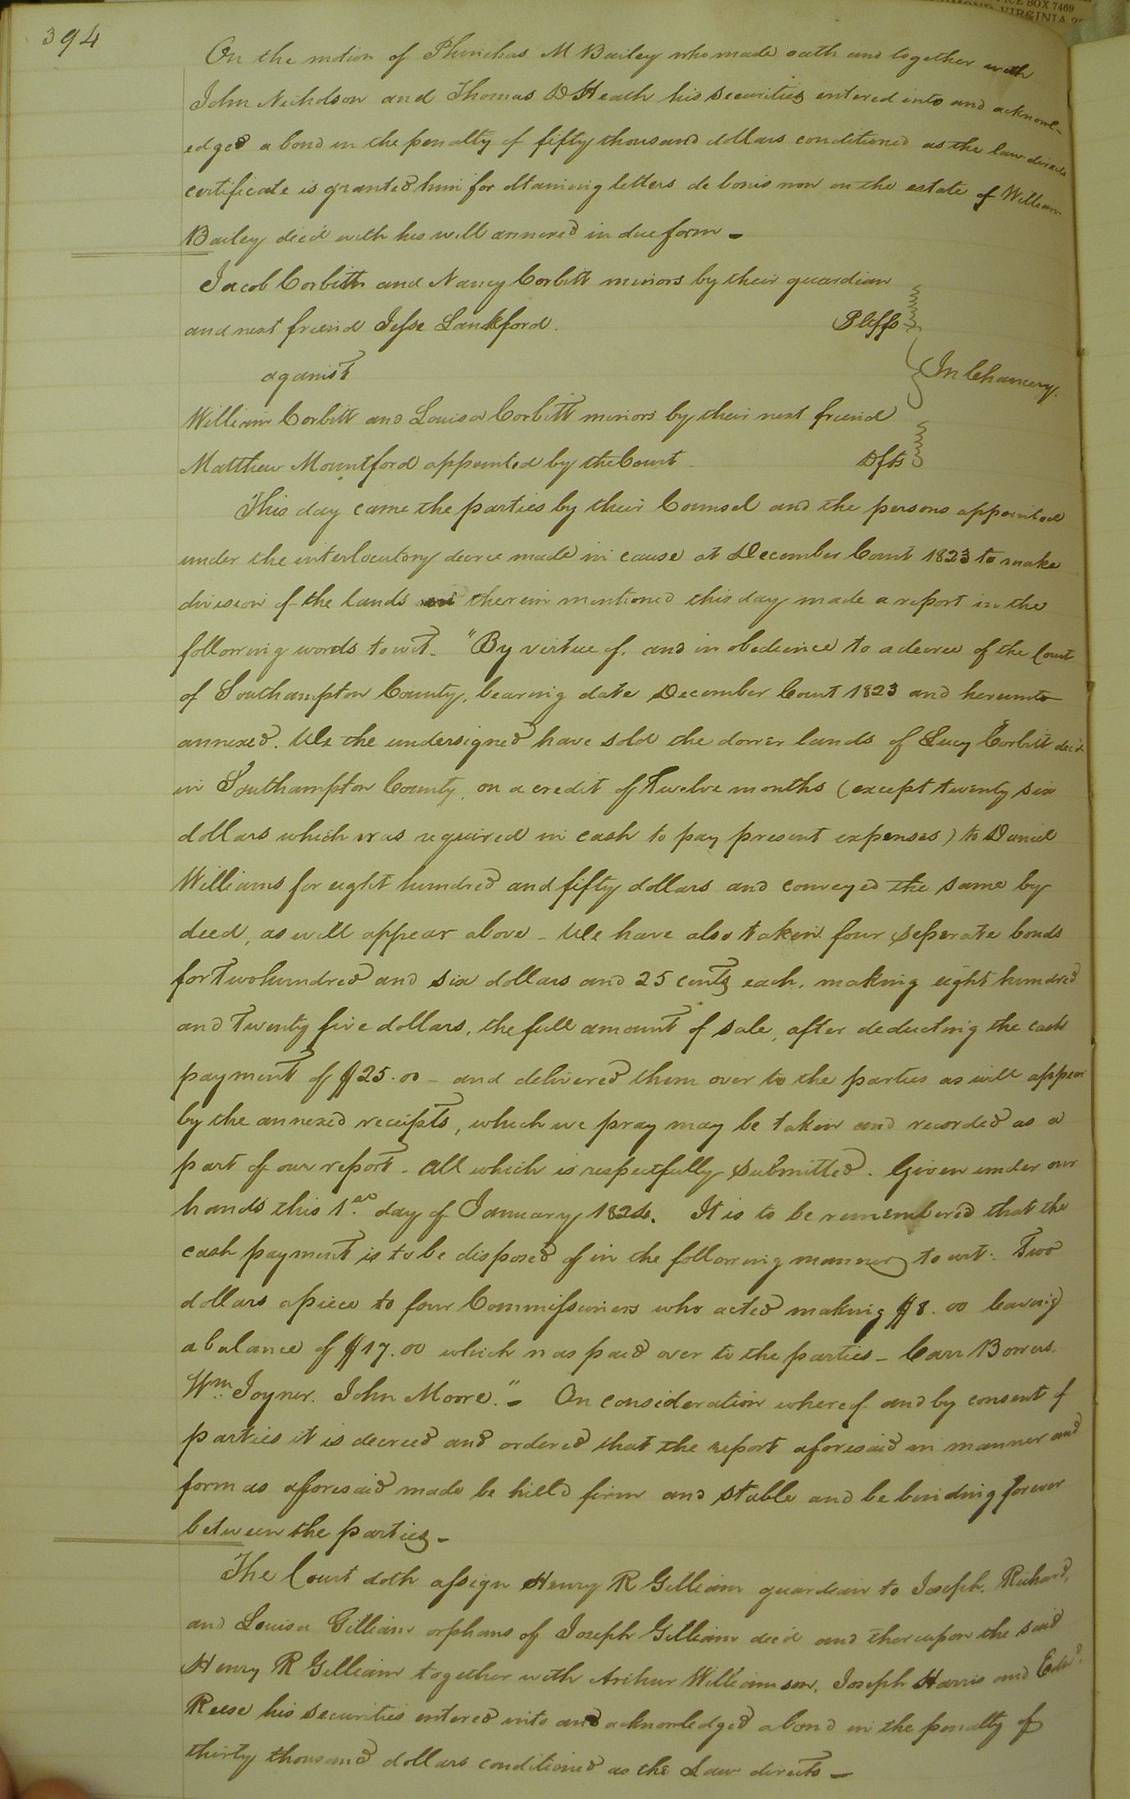 ICE BOX 7469
MOND, VIRGINIA 2
394
On the motion of Phinehas M Bailey who made oath and together with
John Nicholson and Thomas D Heath his securities entered into and acknowl-
edged a bond in the penalty of fifty thousand dollars conditioned as the law directs
certificate is granted him for obtaining letters de bonis non on the estate of William
Bailey decd with his will annexed in due form -
Jacob Corbitt and Nancy Corbitt minors by their guardian
and next friend Jesse Lankford. Pltffs
against In Chancery.
William Corbitt and Louisa Corbitt minors by their next friend
Matthew Mountford appointed by the Court Dfts
This day came the parties by their Counsel and the persons appointed
under the interlocutory decree made in cause at December Court 1823 to make
division of the lands therein mentioned this day made a report in the
following words to wit. "By virtue of, and in obedience to a decree of the Court
of Southampton County, bearing date December Court 1823 and hereunto
annexed. We the undersigned have sold the dower lands of Lucy Corbitt decd
in Southampton County, on a credit of Twelve months (except twenty six
dollars which was required in cash to pay present expenses) to Daniel
Williams for eight hundred and fifty dollars and conveyed the same by
deed, as will appear above - We have also taken four seperate bonds
for Two hundred and six dollars and 25 cents each, making eight hundred
and Twenty five dollars, the full amount of sale, after deducting the cash
payment of $25.00 - and delivered them over to the parties as will appear
by the annexed receipts, which we pray may be taken and recorded as a
part of our report - All which is respectfully submitted. Given under our
hands this 1st day of January 1824. It is to be remembered that the
cash payment is to be disposed of in the following manner to wit: Two
dollars apiece to four Commissioners who acted making $8.00 leaving
a balance of $17.00 which was paid over to the parties - Carr Bowers.
Wm Joyner. John Moore." - On consideration whereof and by consent of
parties it is decreed and ordered that the report aforesaid in manner and
form as aforesaid made be hield firm and stable and be binding forever
between the parties -
The Court doth assign Henry R Gilliam guardian to Joseph, Richard,
and Louisa Gilliam orphans of Joseph Gilliam decd and thereupon the said
Henry R Gilliam together with Arthur Williamson, Joseph Harris and Edwd
Reese his securities entered into and acknowledged a bond in the penalty of
thirty thousand dollars conditioned as the Law directs -